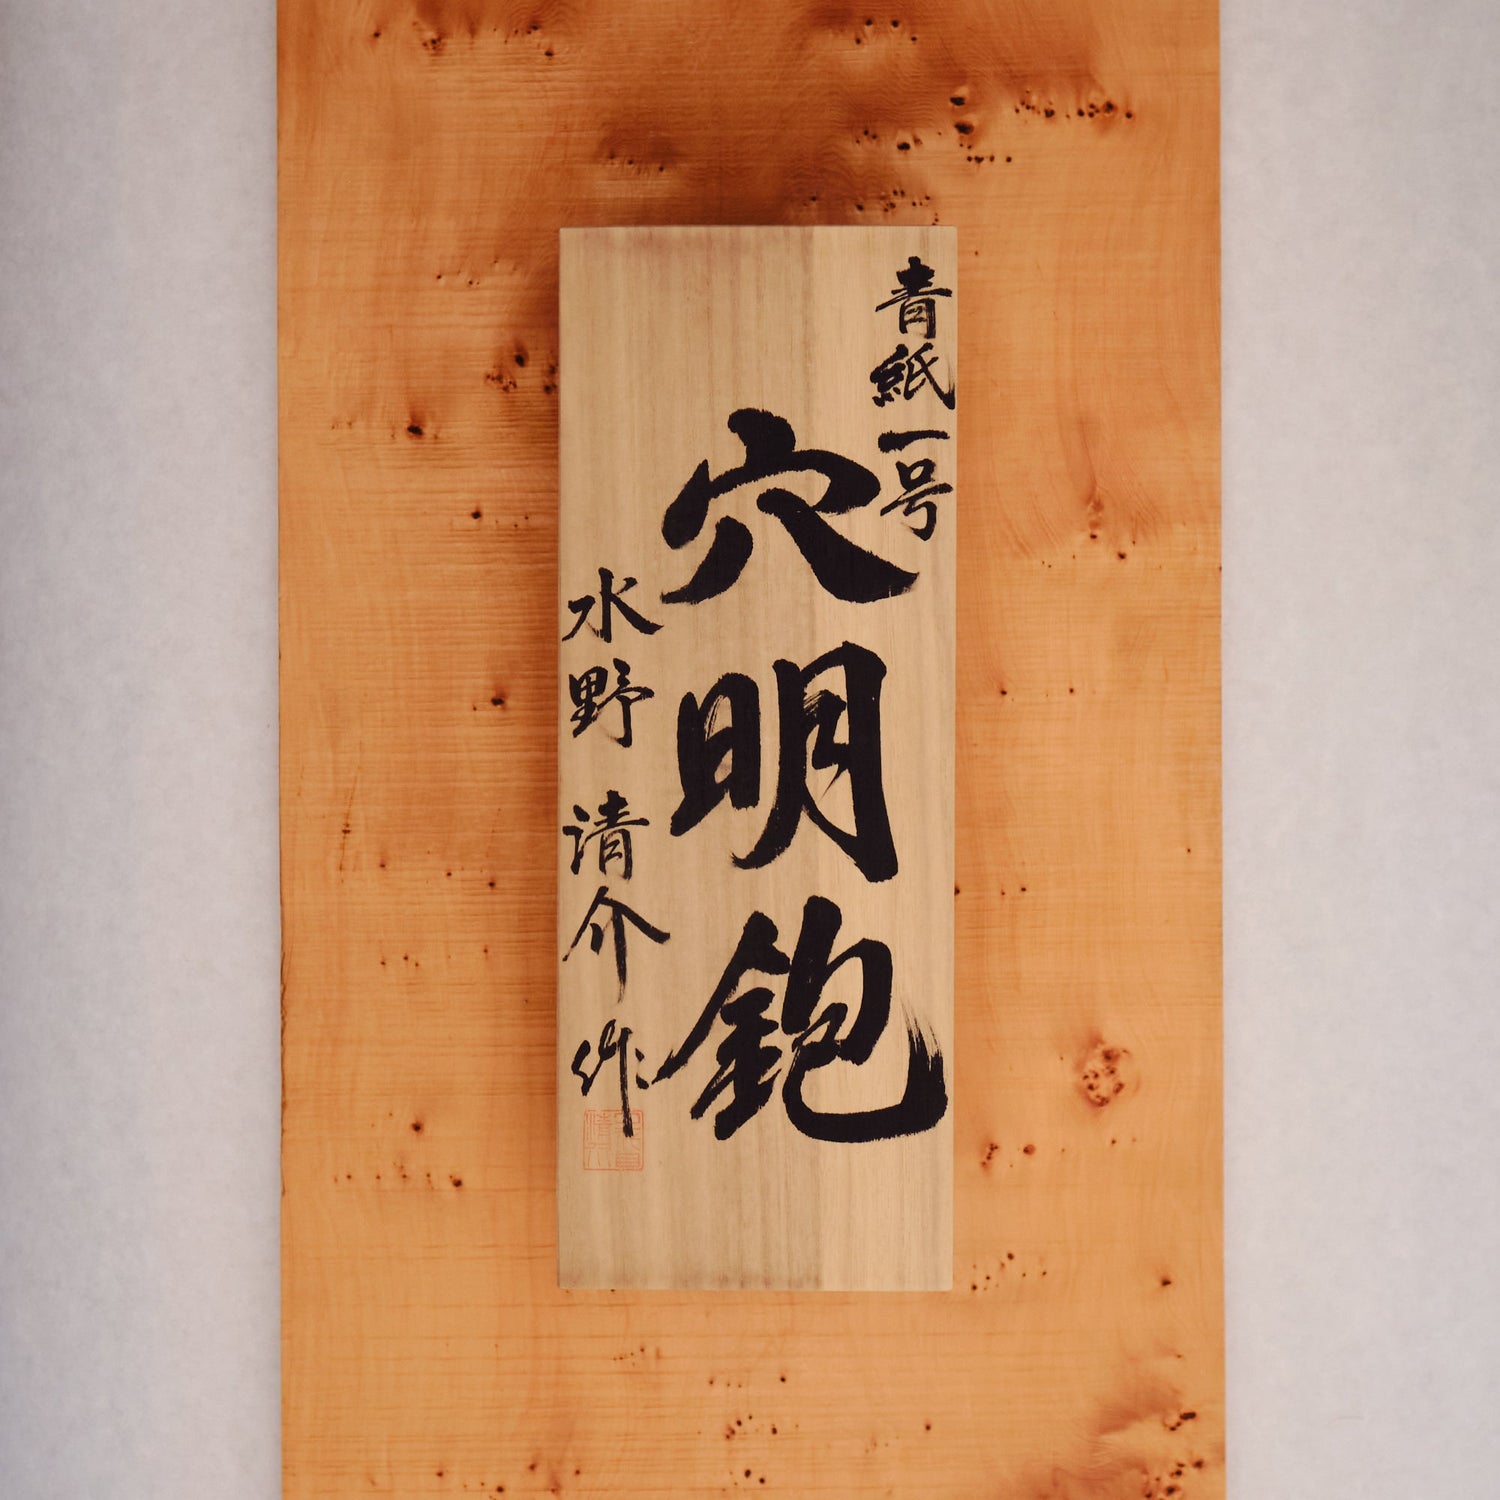 青紙一号
穴明鉋
水野 清介 作